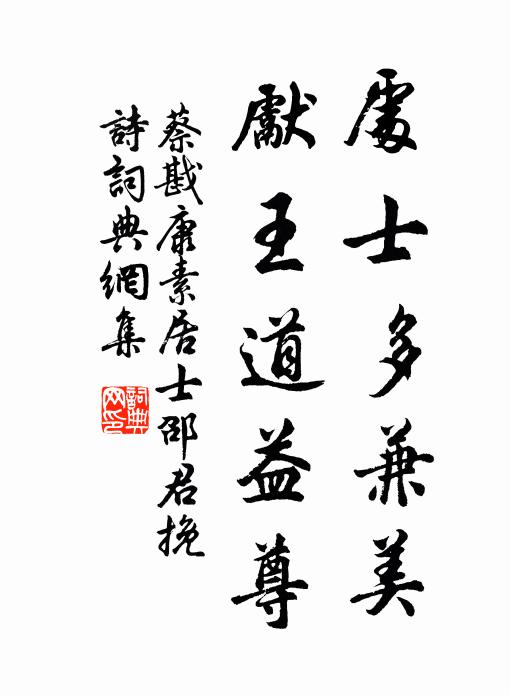 處士多兼美
獻王道益尊
蔡戡康素居士邵君挽
詩詞典網集
詞典
网印